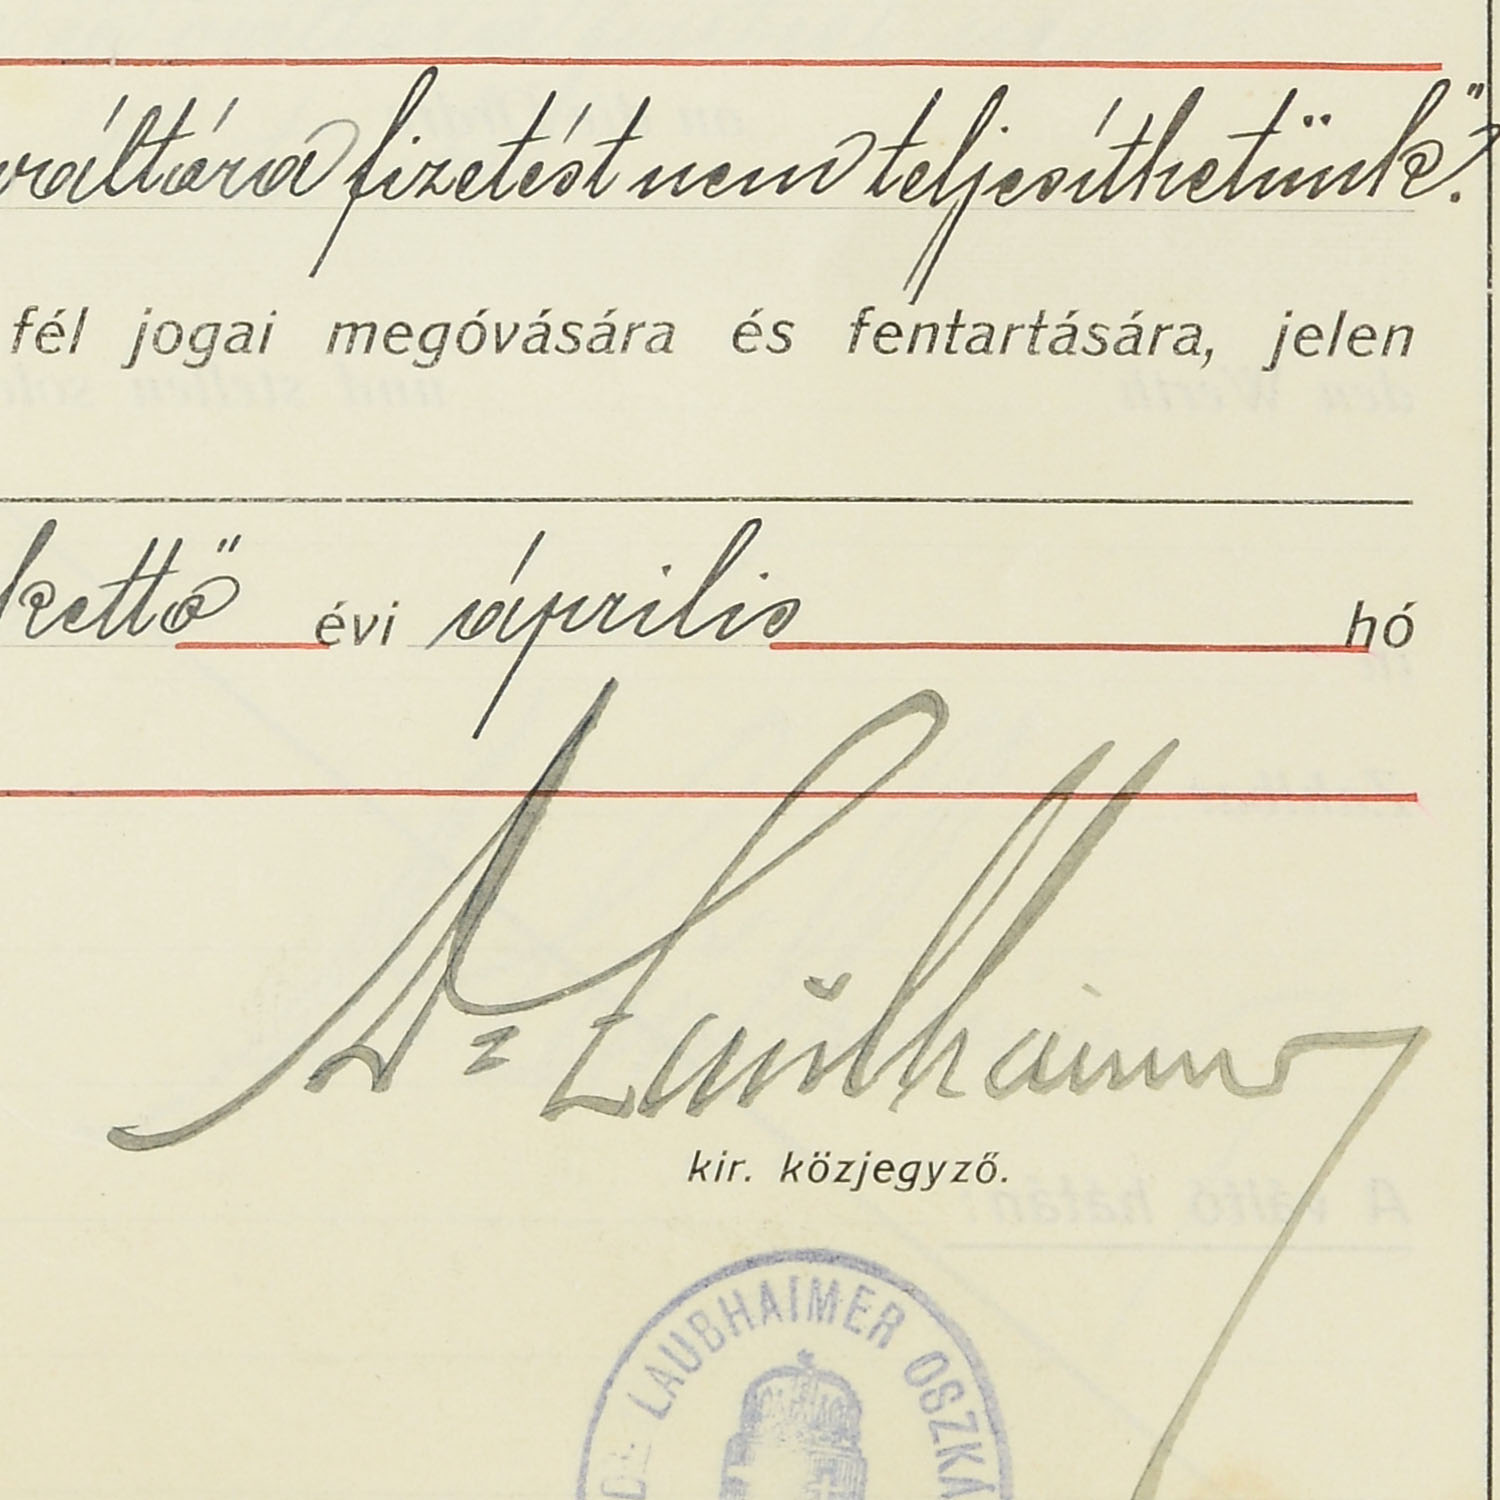 váltóra fizetést nem teljesíthetünk."
fél jogai megóvására és fentartására, jelen
kettő évi április hó
Dr Laubhaimer
kir. közjegyző.
DR LAUBHAIMER OSZKÁ